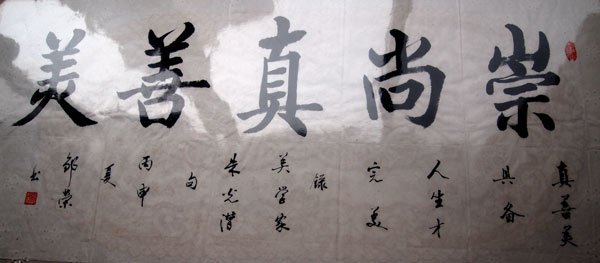 崇尚真善美
真善美
具备
人生才
完美
录
美学家
朱光潜
句
丙申
夏
邹荣
书